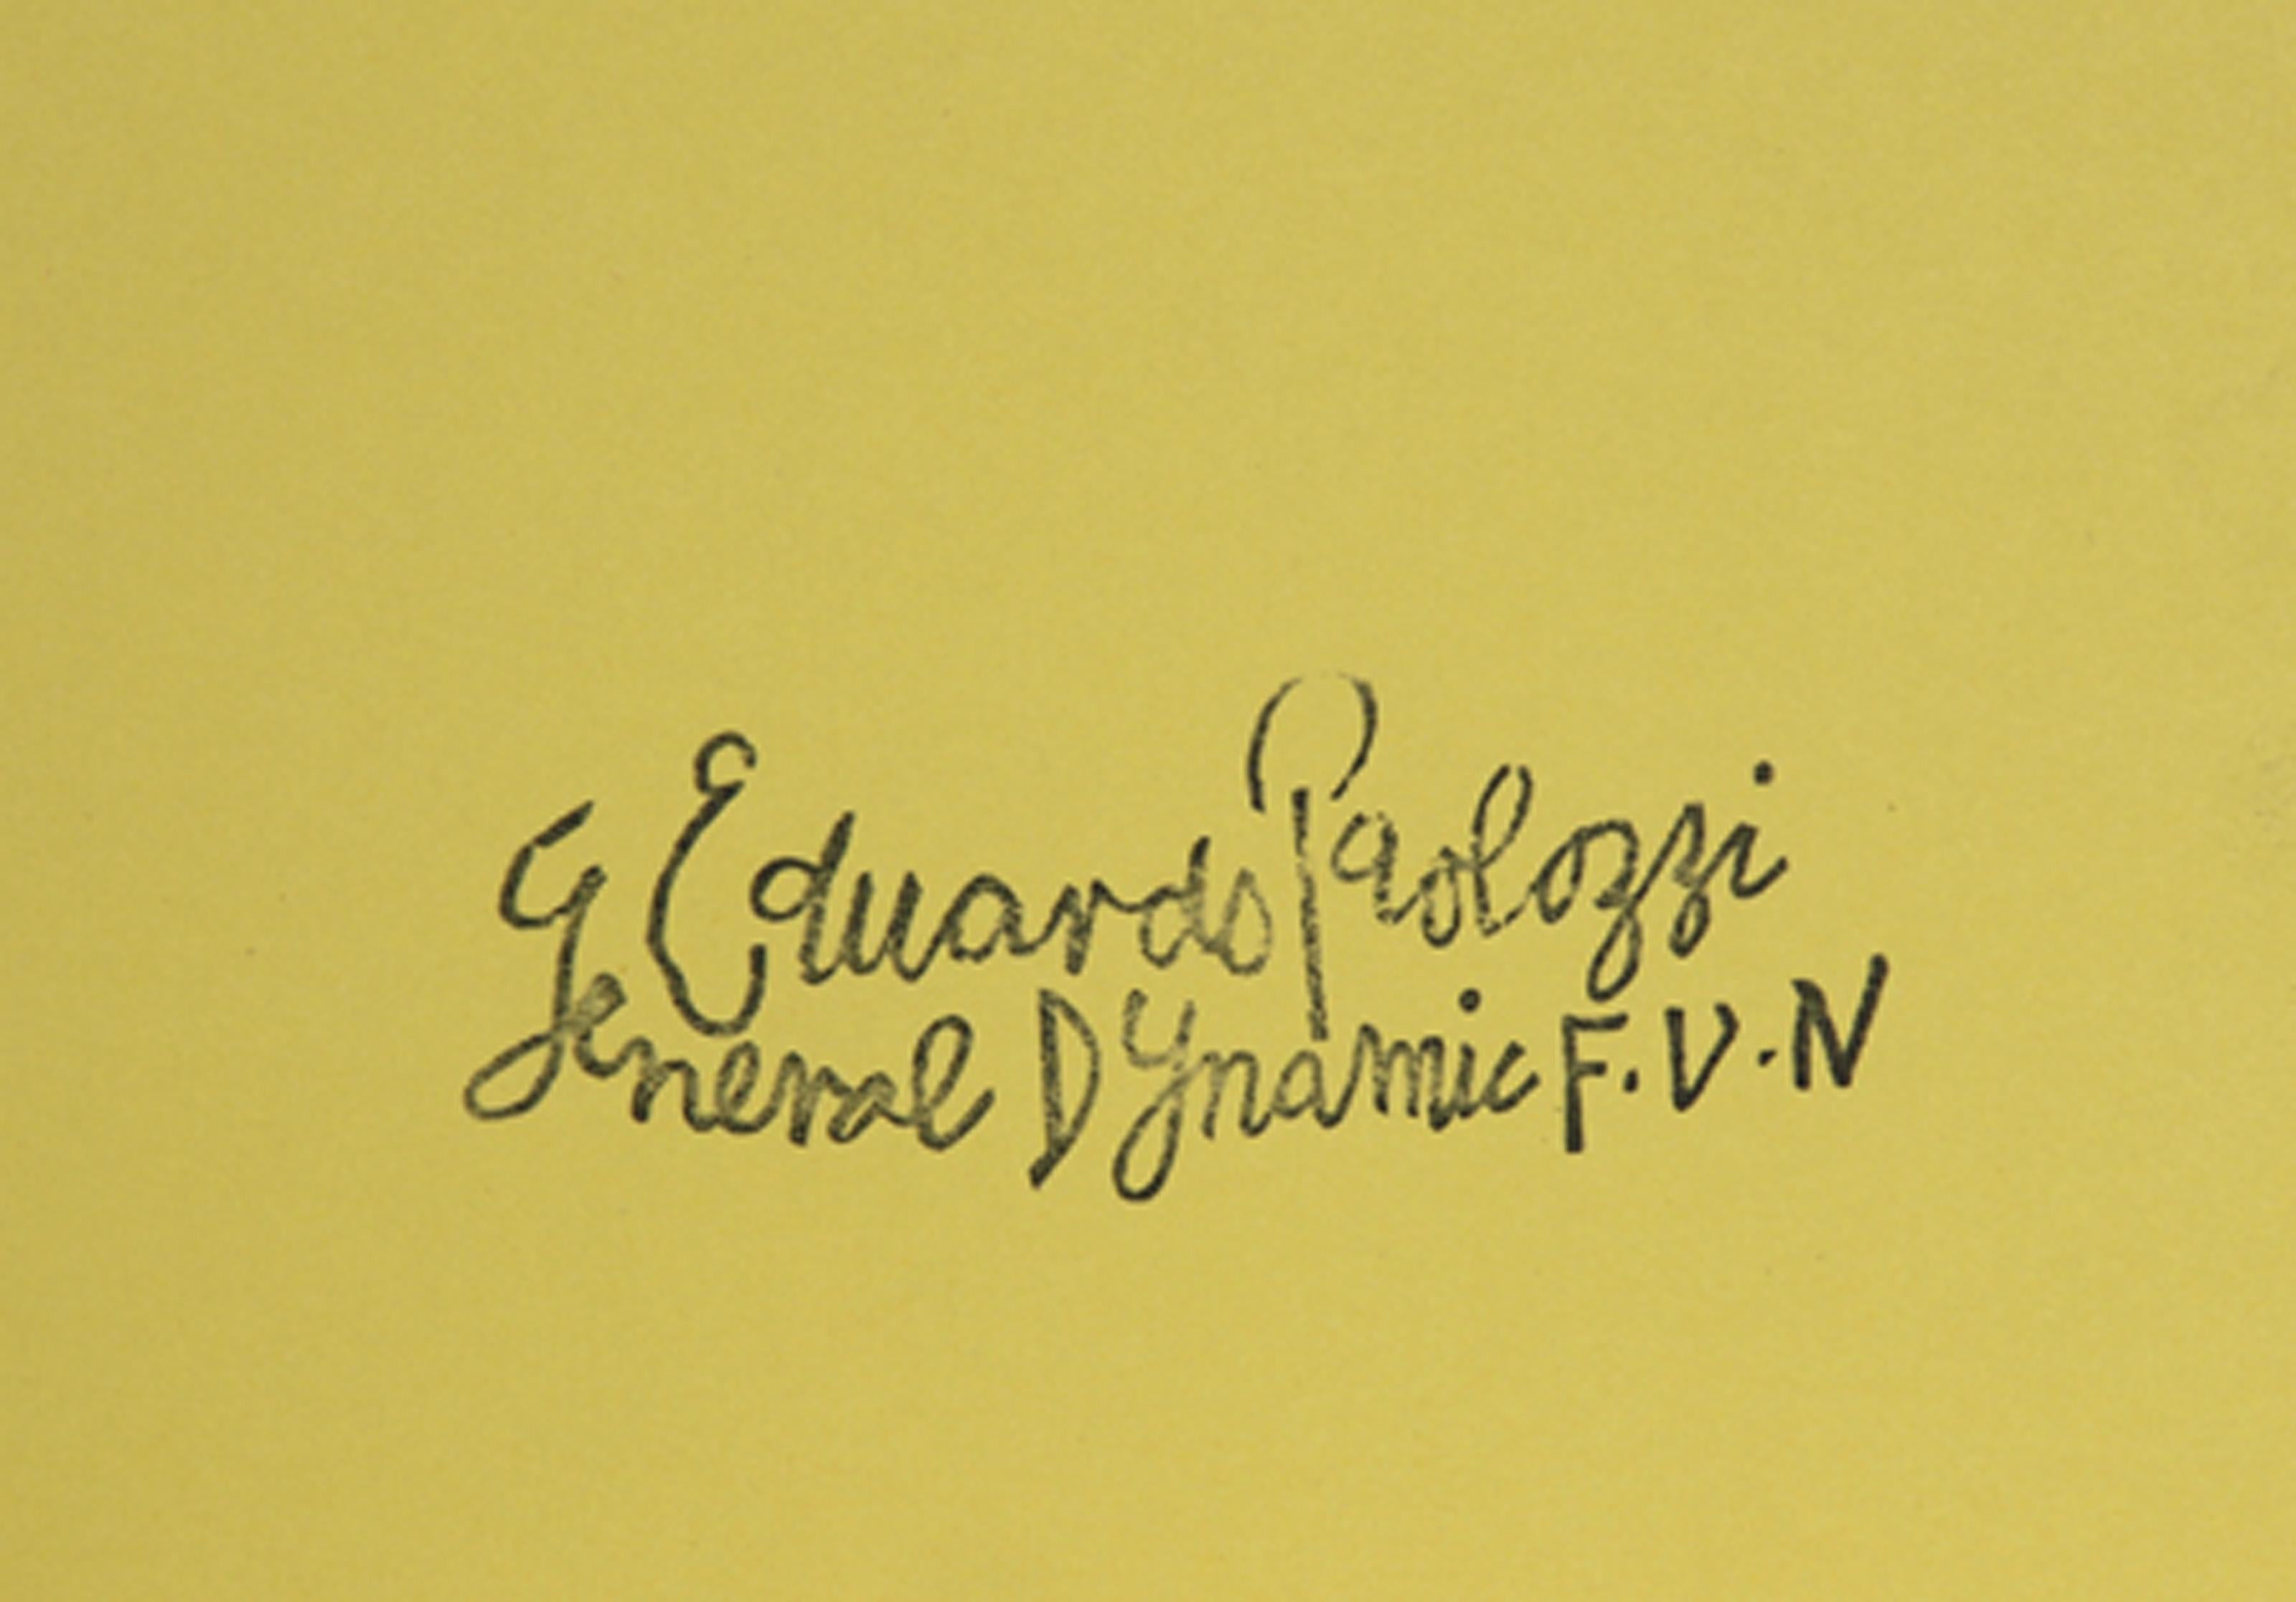 Eduardo Paolozzi
General Dynamic F.V.N